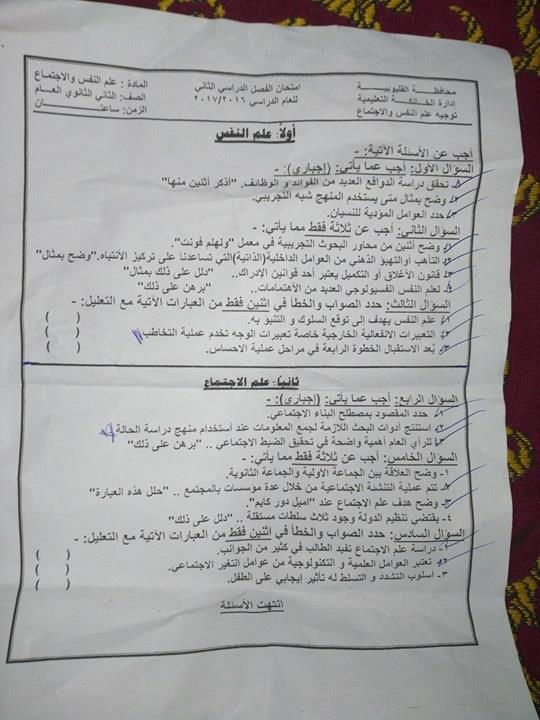 محافظة القليوبية
إدارة الخانكة التعليمية
توجيه علم النفس والاجتماع
امتحان الفصل الدراسي الثاني
للعام الدراسي ٢٠١٧/٢٠١٦
المادة : علم النفس والاجتماع
الصف: الثاني الثانوي العام
الزمن: ساعتان
أولاً: علم النفس
أجب عن الأسئلة الآتية: -
السؤال الأول: أجب عما يأتي: (إجباري): -
١- تحقق دراسة الدوافع العديد من الفوائد و الوظائف. "أذكر أثنين منها"
٢- وضح بمثال متى يستخدم المنهج شبه التجريبي.
٣- حدد العوامل المؤدية للنسيان.
السؤال الثاني: أجب عن ثلاثة فقط مما يأتي: -
١- وضح أثنين من محاور البحوث التجريبية في معمل "ولهلم فونت".
٢- التأهب و التهيؤ الذهني من العوامل الداخلية(الذاتية)التي تساعدنا على تركيز الأنتباه."وضح بمثال"
٣- قانون الأغلاق أو التكميل يعتبر أحد قوانين الادراك.. "دلل على ذلك بمثال"
٤- لعلم النفس الفسيولوجي العديد من الأهتمامات.. "برهن على ذلك"
السؤال الثالث: حدد الصواب والخطأ في اثنين فقط من العبارات الآتية مع التعليل: -
١- علم النفس يهدف إلى توقع السلوك و التنبؤ به. ( )
٢- التعبيرات الانفعالية الخارجية خاصة تعبيرات الوجه تخدم عملية التخاطب. ( )
٣- يُعد الاستقبال الخطوة الرابعة في مراحل عملية الاحساس. ( )
ثانيا: علم الاجتماع
السؤال الرابع: أجب عما يأتي: (إجباري): -
١- حدد المقصود بمصطلح البناء الاجتماعي.
٢- استنتج أدوات البحث اللازمة لجمع المعلومات عند أستخدام منهج دراسة الحالة.
٣- للرأي العام أهمية واضحة في تحقيق الضبط الاجتماعي .. "برهن على ذلك"
السؤال الخامس: أجب عن ثلاثة فقط مما يأتي: -
١- وضح العلاقة بين الجماعة الأولية والجماعة الثانوية.
٢- تتم عملية التنشئة الاجتماعية من خلال عدة مؤسسات بالمجتمع .. "حلل هذه العبارة"
٣- وضح هدف علم الاجتماع عند "اميل دور كايم".
٤- يقتضي تنظيم الدولة وجود ثلاث سلطات مستقلة .. "دلل على ذلك"
السؤال السادس: حدد الصواب والخطأ في اثنين فقط من العبارات الآتية مع التعليل: -
١- دراسة علم الاجتماع تفيد الطالب في كثير من الجوانب. ( )
٢- تعتبر العوامل العلمية و التكنولوجية من عوامل التغير الاجتماعي. ( )
٣- اسلوب التشدد و التسلط له تأثير إيجابي على الطفل. ( )
انتهت الأسئلة